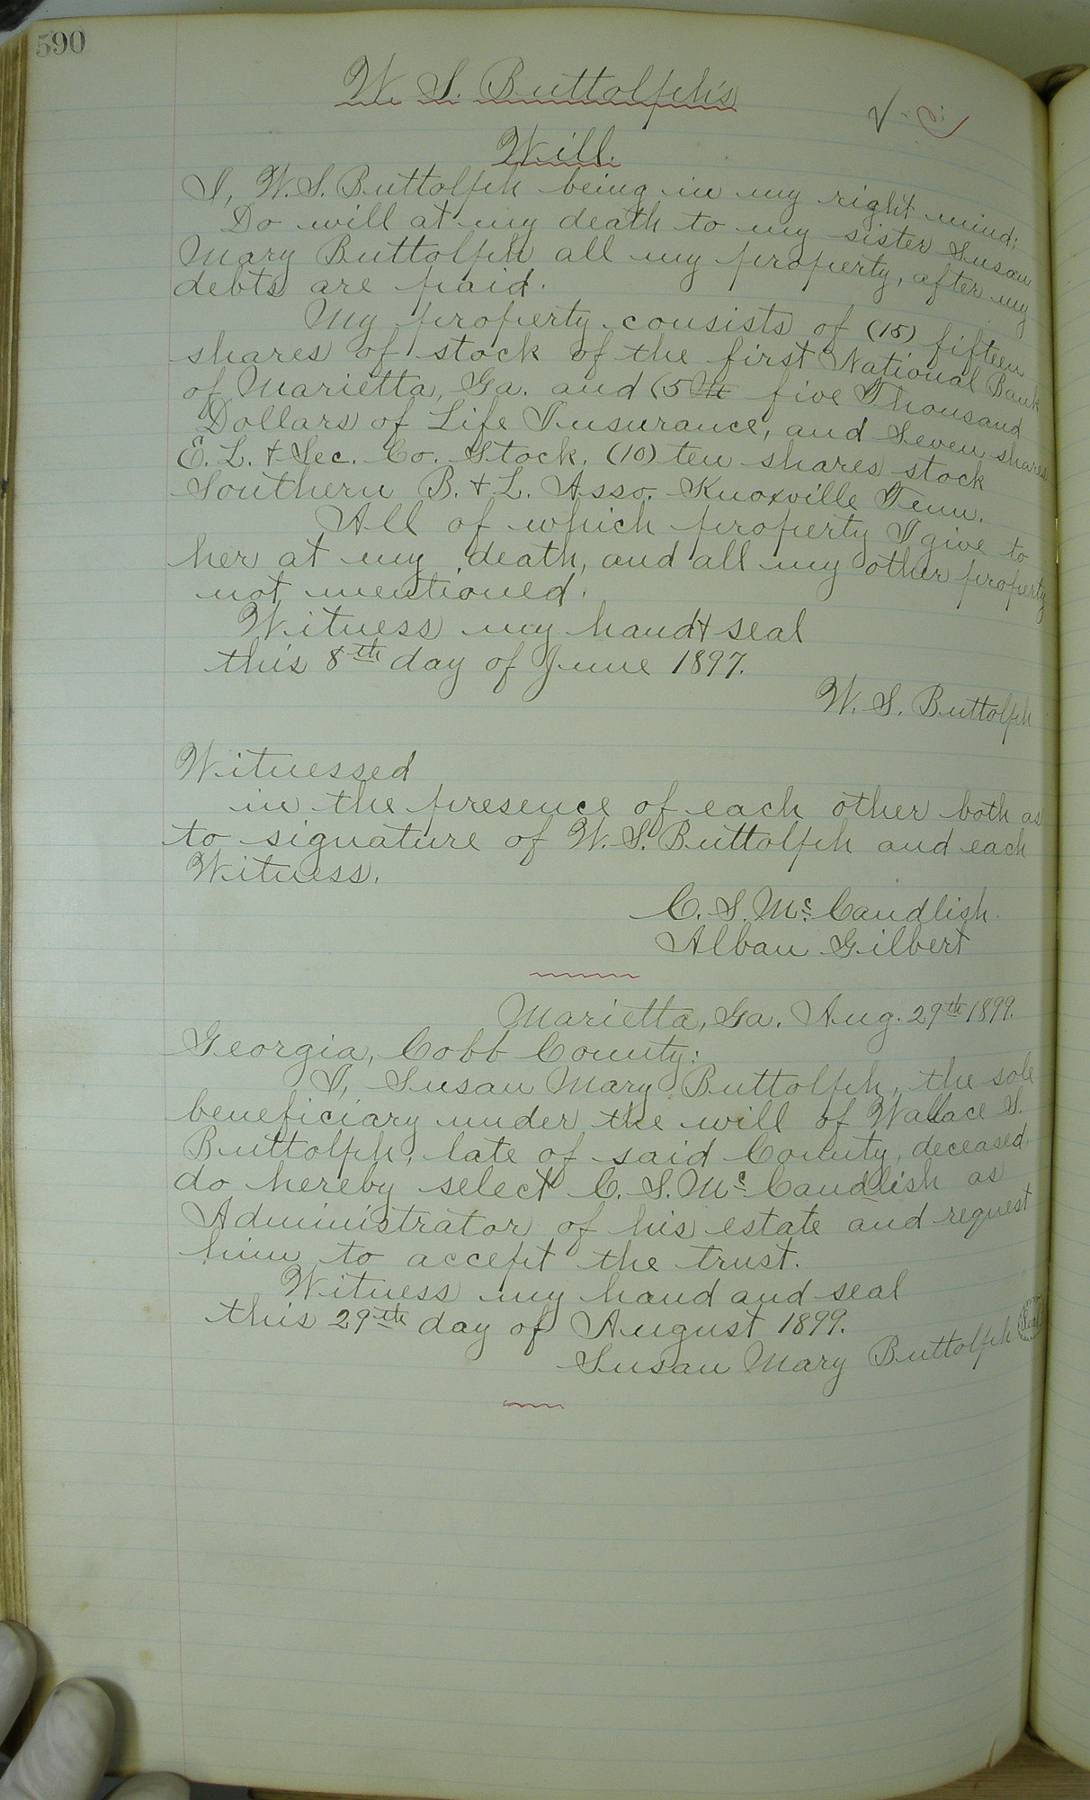 590
W. S. Buttolph's
Will.
I, W. S. Buttolph being in my right mind;
Do will at my death to my sister Susan
Mary Buttolph all my property, after my
debts are paid.
My property consists of (15) fifteen
shares of stock of the first National Bank
of Marietta, Ga. and (5 M five Thousand
Dollars of Life Insurance, and Seven shares
E. L. & Sec. Co. Stock. (10) ten shares stock
Southern B. & L. Asso. Knoxville Tenn.
All of which property I give to
her at my death, and all my other property
not mentioned.
Witness my hand & seal
this 8th day of June 1897.
W. S. Buttolph
Witnessed
in the presence of each other both as
to signature of W. S. Buttolph and each
Witness.
C. S. Mc. Candlish.
Alban Gilbert
Marietta, Ga. Aug. 29th 1899.
Georgia, Cobb County:
I, Susan Mary Buttolph, the sole
beneficiary under the will of Wallace S.
Buttolph, late of said County, deceased,
do hereby select C. S. Mc. Candlish as
Administrator of his estate and request
him to accept the trust.
Witness my hand and seal
this 29th day of August 1899.
Susan Mary Buttolph (Seal)